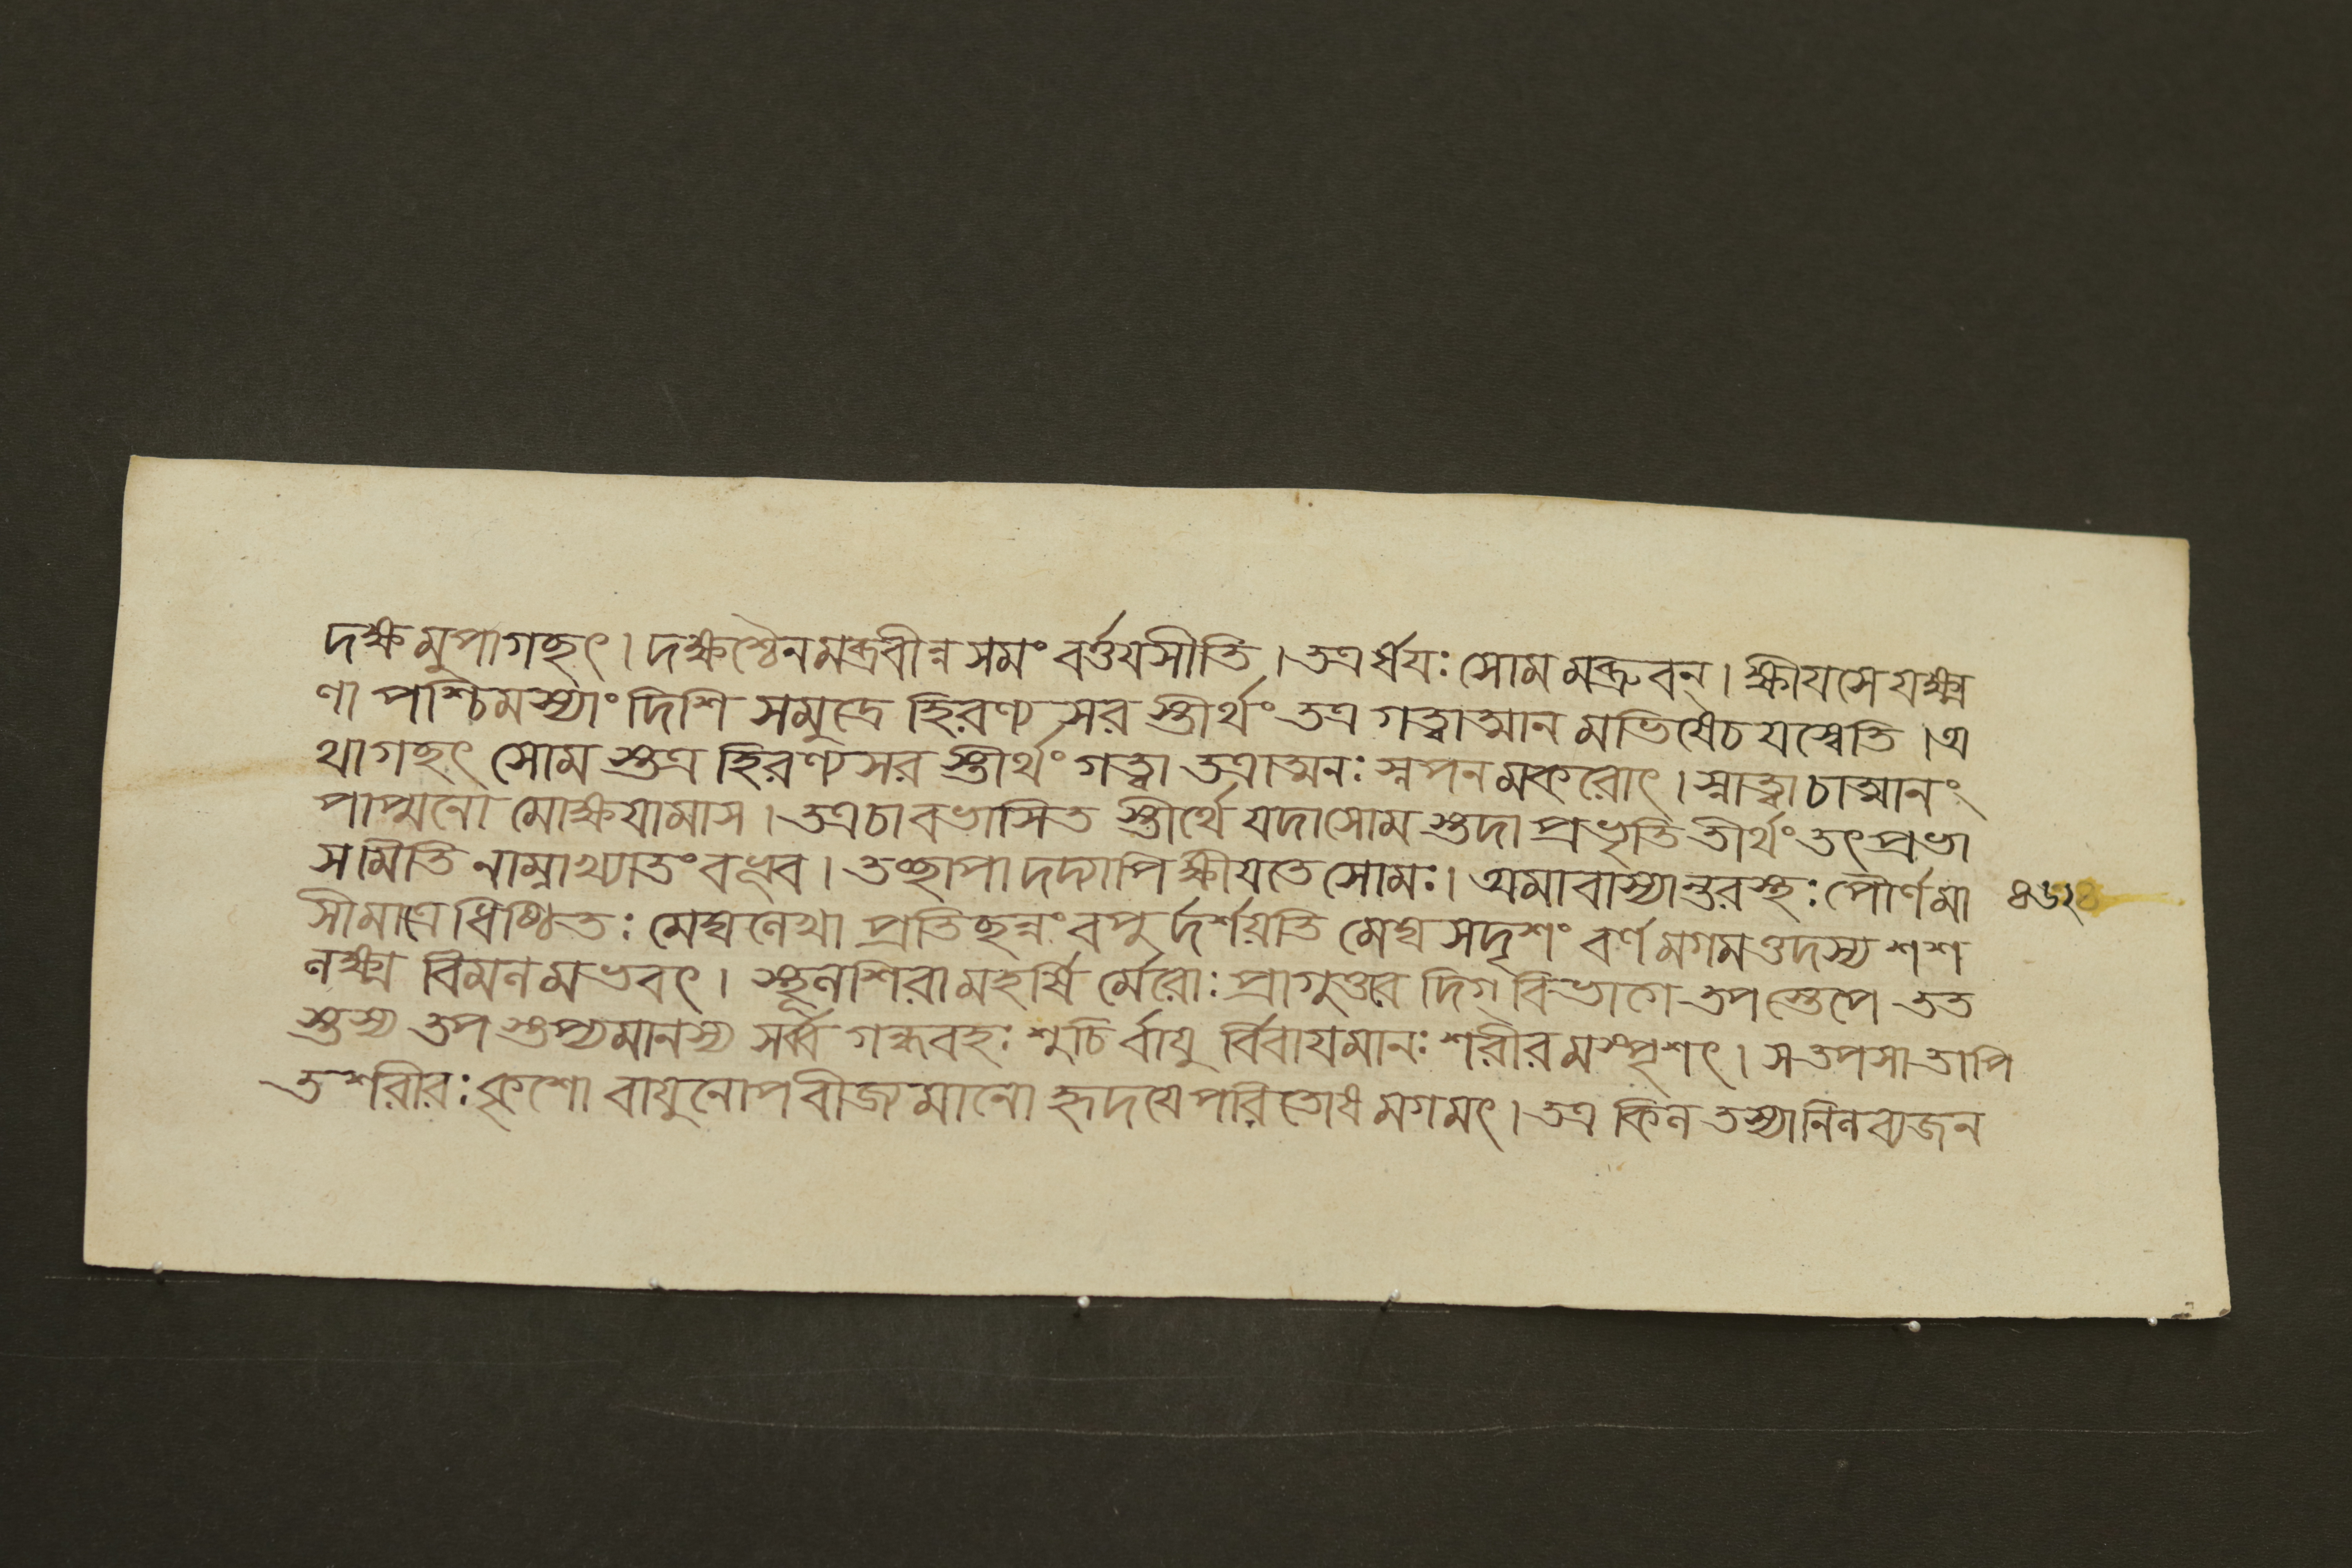 দক্ষমুপাগছৎ । দক্ষশ্চৈনমব্রবীন্ন সমং বর্ত্তযসীতি । তত্রর্ষযঃ সোমমব্রুবন্ । ক্ষীযসে যক্ষ্ম
ণা পশ্চিমস্যাং দিশি সমুদ্রে হিরণ্যসরস্তীর্থং তত্র গত্বাত্মানমভিষেচযস্বেতি । অ
থাগছৎ সোমস্তত্র হিরণ্যসরস্তীর্থং গত্বা তত্রাত্মনঃ স্নপনমকরোৎ । স্নাত্বা চাত্মানং
পাপ্মনো মোক্ষযামাস । তত্র চাবভাসিতস্তীর্থে যদা সোমস্তদা প্রভৃতি তীর্থং তৎ প্রভা
সমিতি নাম্নাখ্যাতং বভূব । তচ্ছাপাদদ্যাপি ক্ষীযতে সোমঃ । অমাবাস্যান্তরস্থঃ পৌর্ণমা
সীমাত্রেধিষ্ঠিতঃ মেঘলেখাপ্রতিছন্নং বপুর্দর্শয়তি মেঘসদৃশং বর্ণমগমত্তদস্য শশ
লক্ষ্ম বিমলমভবৎ । স্থূলশিরা মহর্ষির্মেরোঃ প্রাগুত্তরদিগ্বিভাগে তপস্তেপে তত
স্তস্য তপস্তপ্যমানস্য সর্ব্বগন্ধবহঃ শুচির্বাযুর্বিবাযমানঃ শরীরমস্পৃশৎ । স তপসা তাপি
ত শরীরঃ কৃশো বাযুনোপবীজ্যমানো হৃদযে পরিতোষমগমৎ । তত্র কিল তস্যানিলব্যজন
৪৬২৪